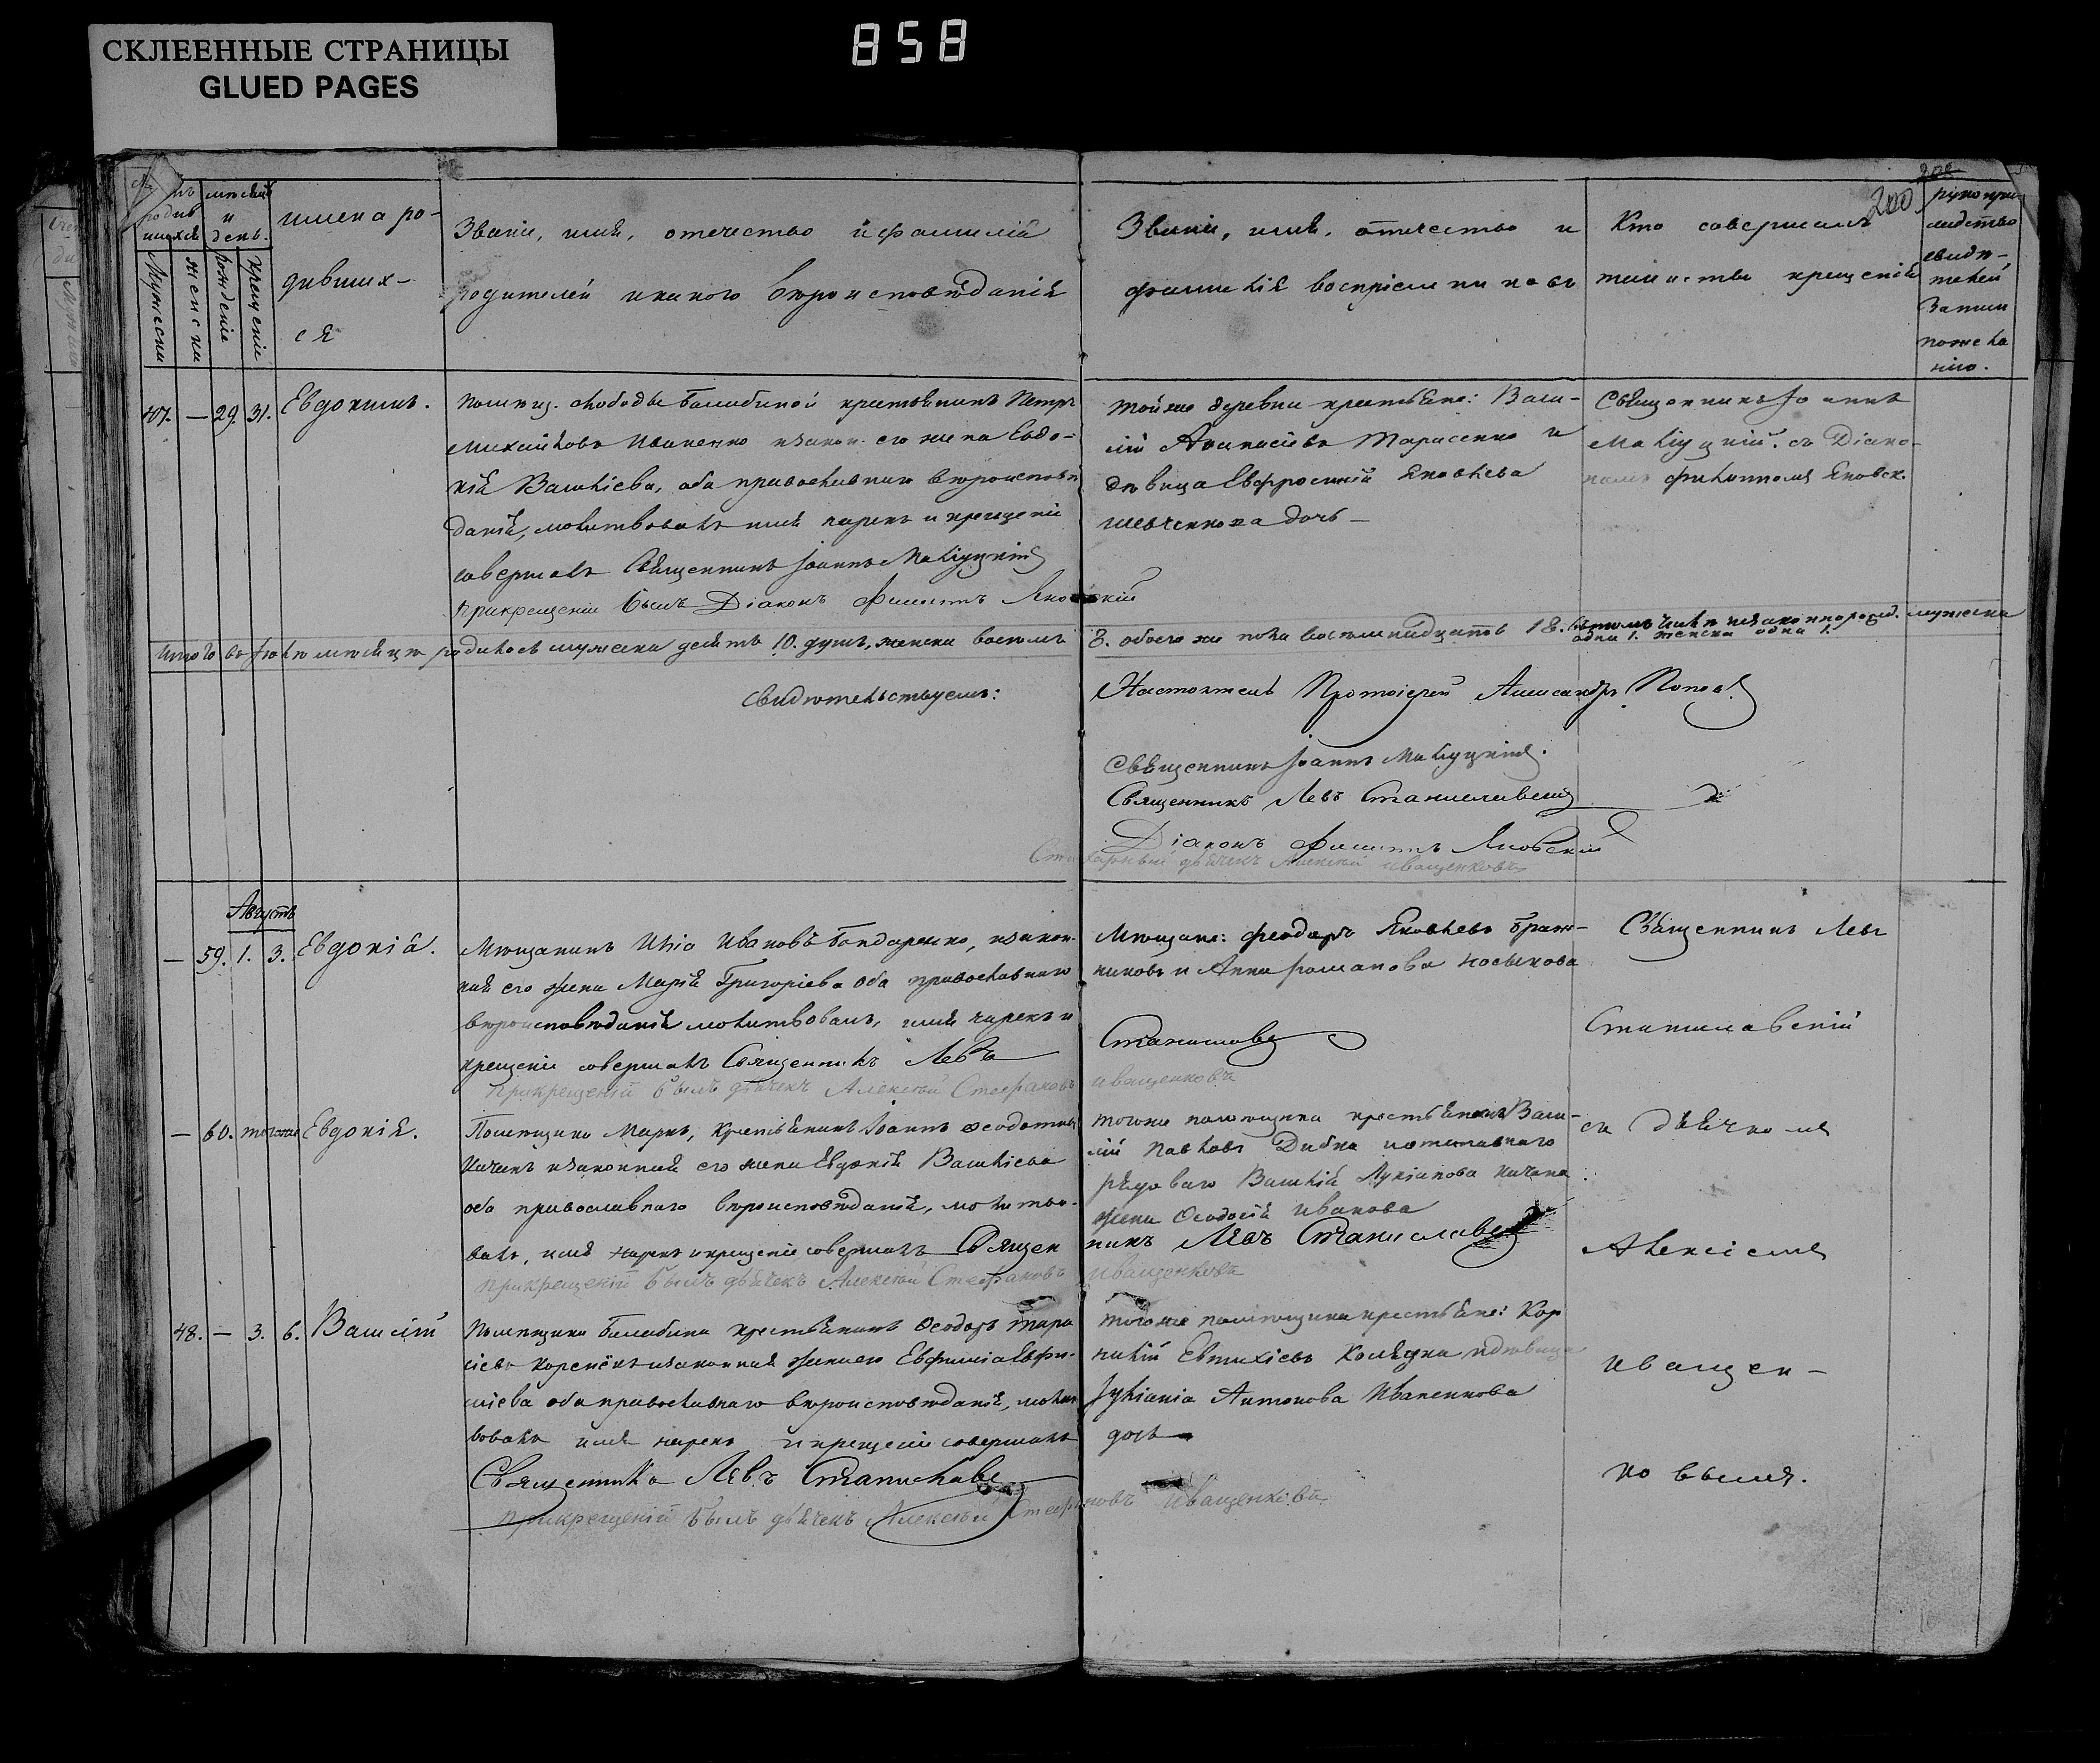 СКЛЕЕННЫЕ СТРАНИЦЫ
GLUED PAGES
858
200
имена ро-
дивших-
ся
мужески
женски
рожденіе
крещеніе
Званіе, имя, отечество и фамилія
родителей и какого вѣроисповѣданія
Званіе, имя, отчество и
фамилія воспріемниковъ
Кто совершалъ
таинство крещенія
рукопри-
кладство
свидѣ-
телей
— 29. 31. Евдокимъ.
слободы Балабиной крестьянинъ Петръ
Михайловъ Иваненко и законная его жена Евдо-
кія Василіева, оба православнаго вѣроисповѣ
данія, молитвовалъ имя нарекъ и крещеніе
совершалъ Священникъ Іоаннъ
При крещеніи былъ Діаконъ Филиппъ Яновскій
той же деревни крестьяне: Васи-
лій Аѳанасіевъ Тарасенко и
дѣвица Евфросинія Яковлева
Шевченкова дочь —
Священникъ Іоаннъ
съ Діако-
номъ Филиппомъ Яновск.
Итого въ Іюлѣ мѣсяцѣ родилось мужеска десять 10. душъ, женска восемь 8. обоего же пола восемнадцать 18. въ томъ числѣ незаконнорожд. мужеска
одна 1. женска одна 1.
Свидѣтельствуемъ:
Настоятель Протоіерей Александръ Поповъ
Священникъ Іоаннъ
Священникъ Левъ Станиславскій
Діаконъ Филиппъ Яновскій
Стихарный дьячекъ Алексѣй Иващенковъ
Августъ
— 59. 1. 3. Евдокія.
Мѣщанинъ Илія Ивановъ Бондаренко, и закон-
ная его жена Марія Григоріева оба православнаго
вѣроисповѣданія молитвовалъ, имя нарекъ и
крещеніе совершалъ Священникъ Левъ
Станиславс
При крещеніи былъ дьячекъ Алексѣй Стефановъ Иващенковъ
Мѣщане: Феодоръ Яковлевъ Браж-
никовъ и Анна Романова Носикова
Священникъ Левъ
Станиславскій
— 60. тогоже Евдокія.
Помѣщика Марка, крестьянинъ Іоаннъ Ѳеодотовъ
и законная его жена Евдокія Василіева
оба православнаго вѣроисповѣданія, молитво-
валъ, имя нарекъ и крещеніе совершалъ Священ
никъ Левъ Станиславс
При крещеніи былъ дьячекъ Алексѣй Стефановъ Иващенковъ
того же помѣщика крестьянинъ Васи-
лій Павловъ Дибка и отставнаго
рядоваго Василія Лукіанова
жена Ѳеодосія Иванова
съ дьячкомъ
Алексіемъ
48. — 3. 6. Василій
Помѣщика Балабина крестьянинъ Ѳеодоръ Тара
сіевъ и законная жена его Евфимія Евфи-
міева оба православнаго вѣроисповѣданія, молит
вовалъ имя нарекъ и крещеніе совершалъ
Священникъ Левъ Станиславс
При крещеніи былъ дьячекъ Алексѣй Стефановъ Иващенковъ
того же помѣщика крестьяне: Кор
нилій Евтихіевъ Коледка и дѣвица
Іуліанія Антонова Иваненкова
дочь
Иващен-
ковымъ.